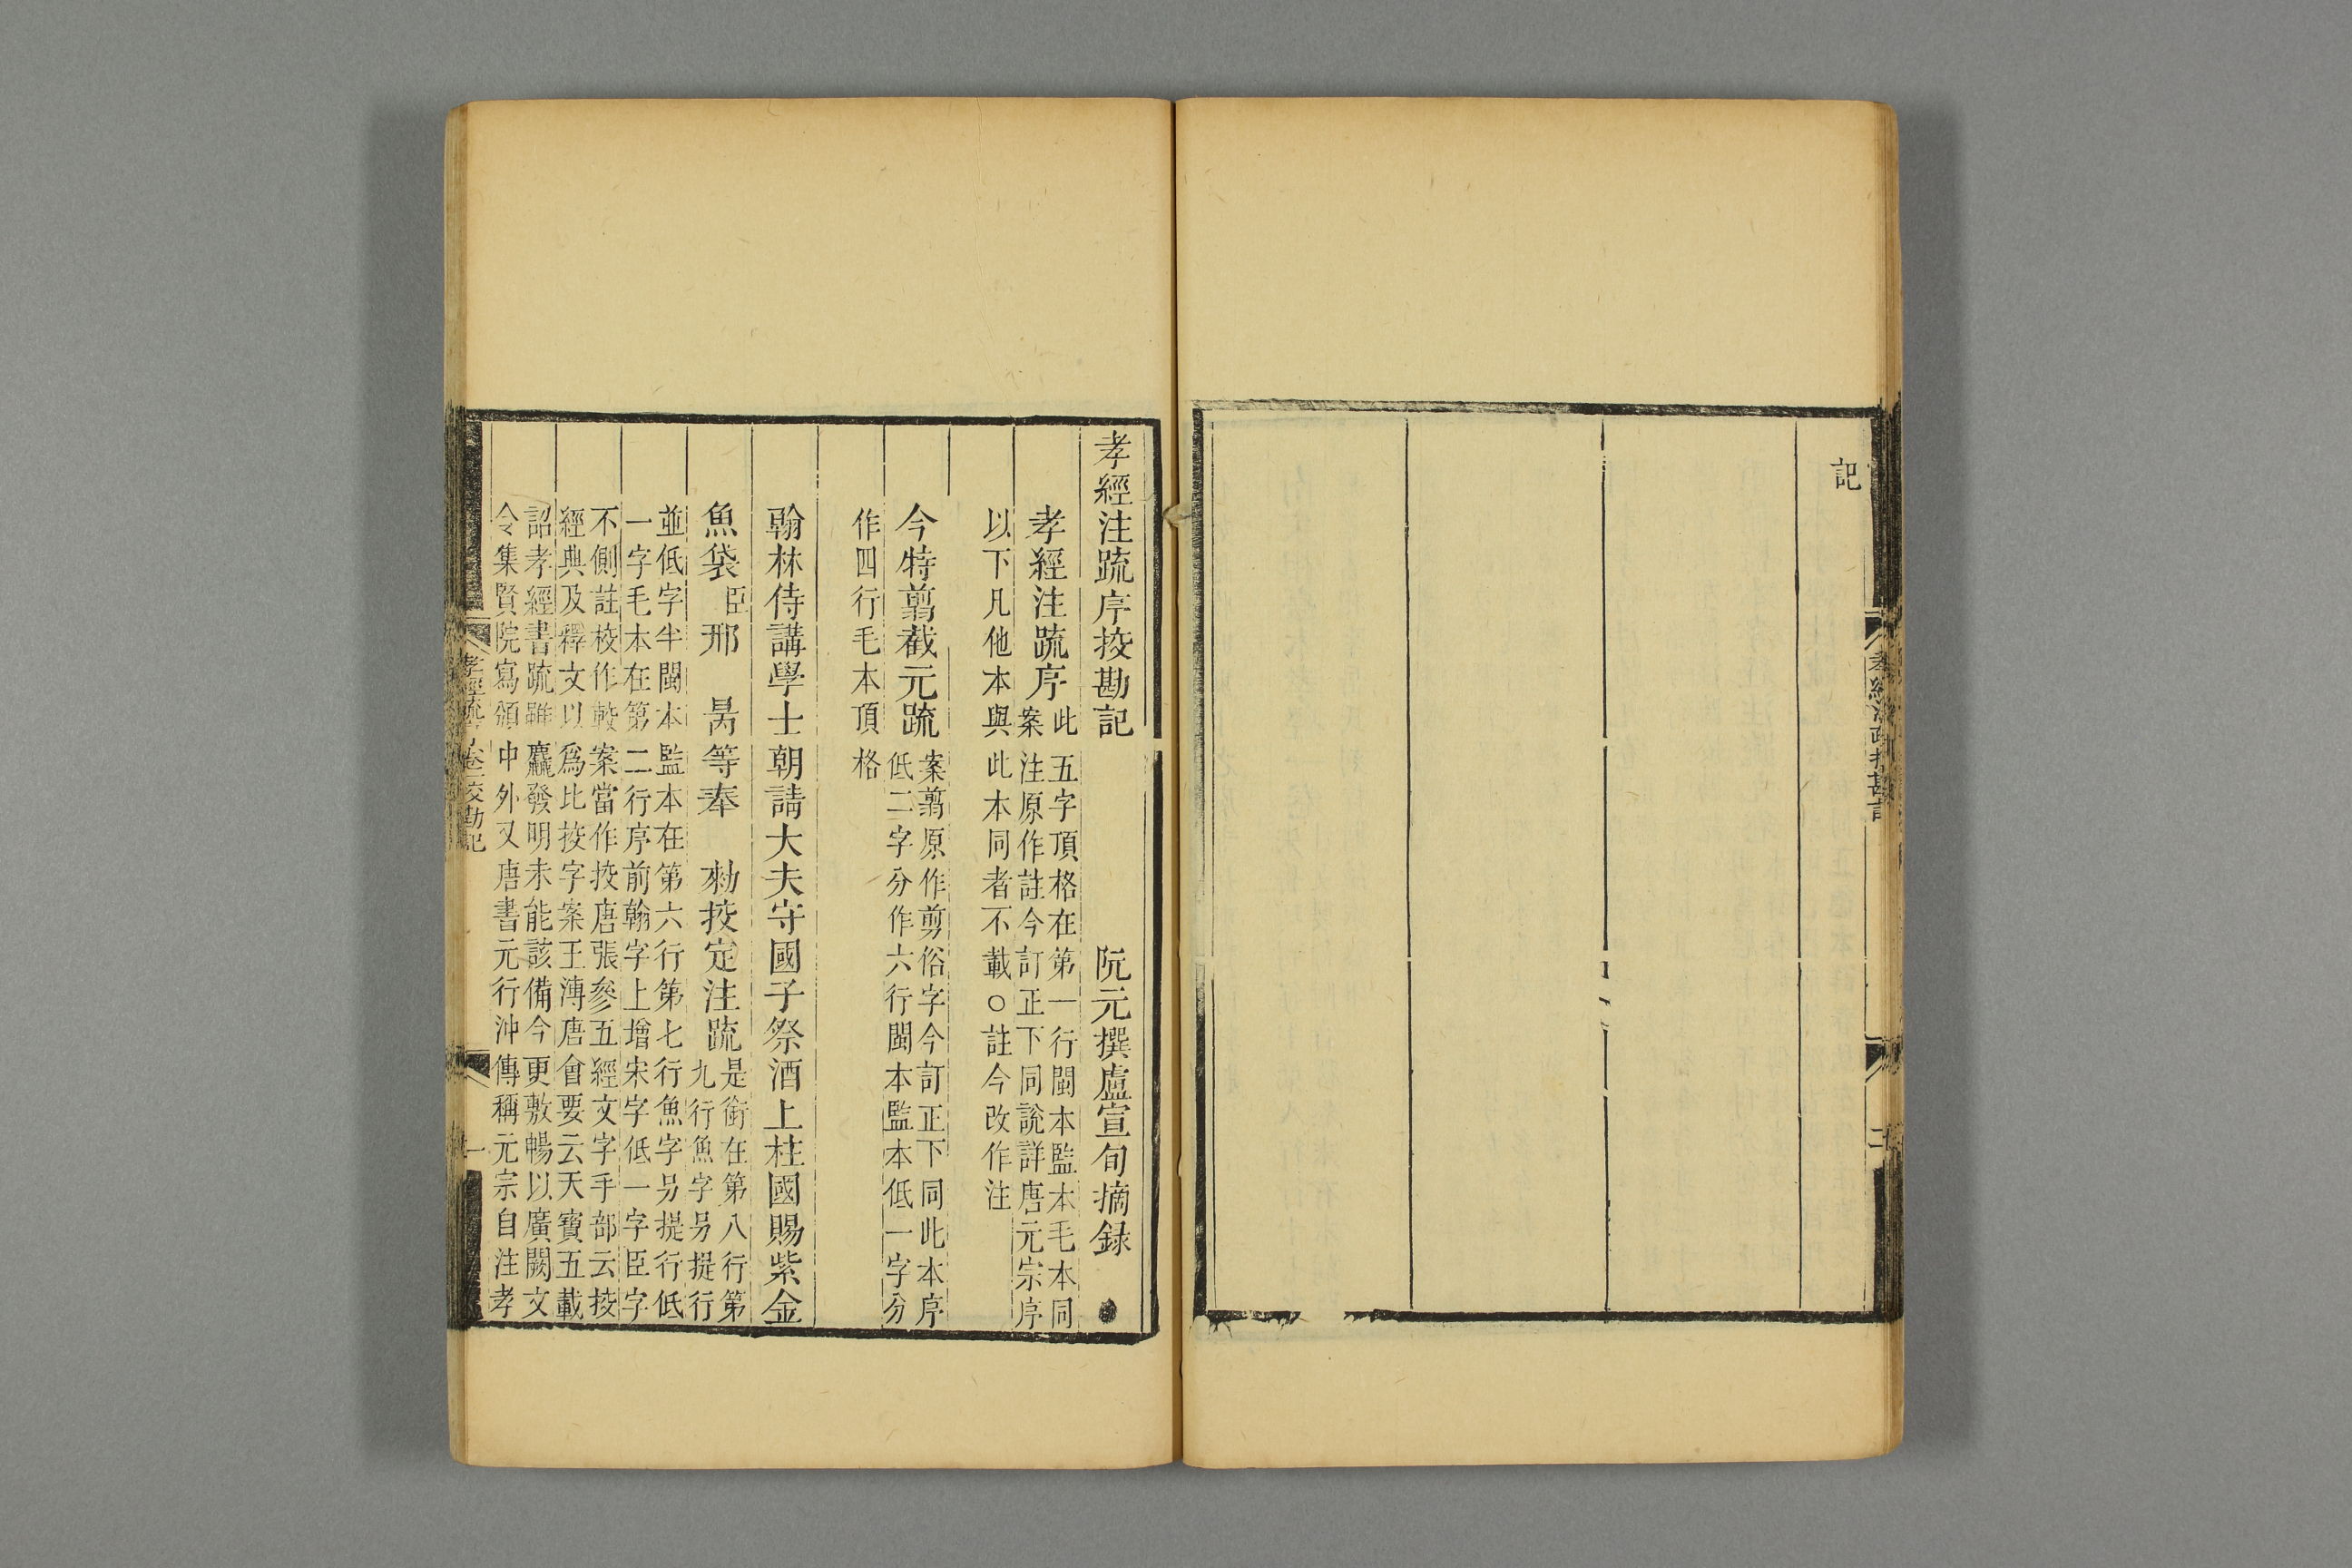 記
孝經注疏序挍勘記　阮元撰盧宣旬摘録
孝經注疏序
此五字頂格在第一行閩本監本毛本同
案注原作註今訂正下同說詳唐元宗序
以下凡他本與此本同者不載○註今改作注
今特翦截元疏
案翦原作剪俗字今訂正下同此本序
低二字分作六行閩本監本低一字分
作四行毛本頂格
翰林侍講學士朝請大夫守國子祭酒上柱國賜紫金
魚袋臣邢昺等奉　勑挍定注疏
是銜在第八行第
九行魚字另提行
並低字半閩本監本在第六行第七行魚字另提行低
一字毛本在第二行序前翰字上增宋字低一字臣字
不側註校作較案當作挍唐張參五經文字手部云挍
經典及釋文以爲比挍字案王溥唐會要云天寶五載
詔孝經書疏雖麤發明未能該備今更敷暢以廣闕文
令集賢院寫頒中外又唐書元行沖傳稱元宗自注孝